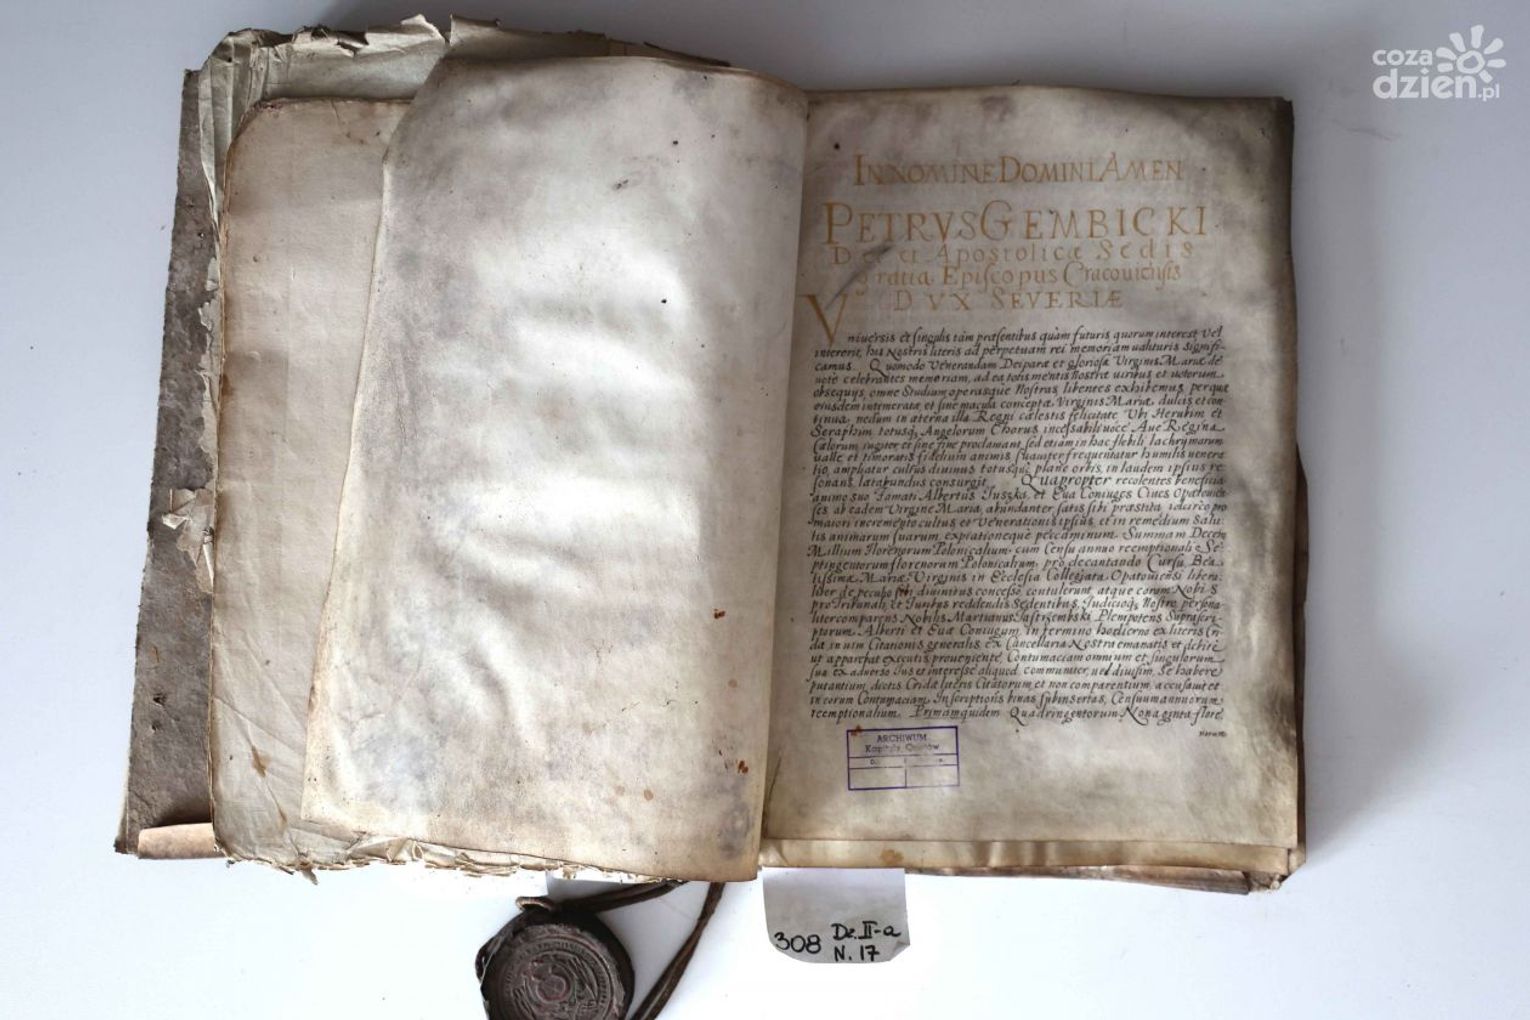 coza
dzien.pl
IN NOMINE DOMINI AMEN
PETRVS GEMBICKI
Dei et Apostolicæ Sedis
gratia Episcopus Cracouiensis
DVX SEVERIÆ
Vniuersis et singulis tàm præsentibus quàm futuris quorum interest vel
intererit, his Nostris literis ad perpetuam rei memoriam ualituris signifi-
camus. Quomodo Venerandam Deiparæ et gloriosæ Virginis Mariæ de
uotè celebrantes memoriam, ad ea totis mentis nostræ uiribus et uotorum
obsequijs, omne Studium operasque Nostras libentes exhibemus, per quæ
eiusdem intemeratæ et sine macula conceptæ Virginis Mariæ, dulcis et con-
tinua, nedum in æterna illa Regni cælestis felicitate Vbi Herubim et
Seraphim totusq; Angelorum Chorus incessabili uoce Aue Regina
Cælorum iugiter et sine fine proclamant, sed etiam in hac flebili lachrymarum
ualle et timoratis fidelium animis suauiter frequentatur humilis uenera
tio, ampliatur cultus diuinus totusquè planè orbis, in laudem ipsius re
sonans lætabundus consurgit. Quapropter recolentes beneficia
animo suo Famati Albertus Fuszka, et Eua Coniuges Ciues Opatouien
ses ab eadem Virgine Maria, abundanter satis sibi præstita, idcirco pro
maiori incremento cultus et Venerationis ipsius, et in remedium Salu-
tis animarum suarum, expiationeque peccaminum. Summam Decem
Millium florenorum Polonicalium, cum Censu annuo reemptionali Se-
ptingentorum florenorum Polonicalium, pro decantando Cursu Bea-
tissimæ Mariæ Virginis in Ecclesia Collegiata Opatouiensi libera-
liter de peculio sibi diuinitus concesso contulerunt, atque coram Nobis
pro Tribunali, et Iuribus reddendis Sedentibus, Iudicioq; Nostro persona-
liter comparens Nobilis Martianus Jastrzembski Plenipotens Suprascri-
ptorum Alberti et Euæ Coniugum, in termino hodierno ex literis Cri-
dæ in uim Citationis generalis ex Cancellaria Nostra emanatis et debitè
ut apparebat executis proueniente, Contumaciam omnium et singulorum
sua ex aduerso Ius et interesse aliquod communiter, uel diuisim, se habere
putantium, dictis Cridæ literis Citatorum et non comparentium, accusauit et
in eorum Contumaciam, Inscriptionis binas subinsertas, Censuum annuorum
reemptionalium. Primam quidem Quadringentorum Nonaginta flore
norum
ARCHIWUM
Kapituły Opatów
308 Dz. II-a
N. 17